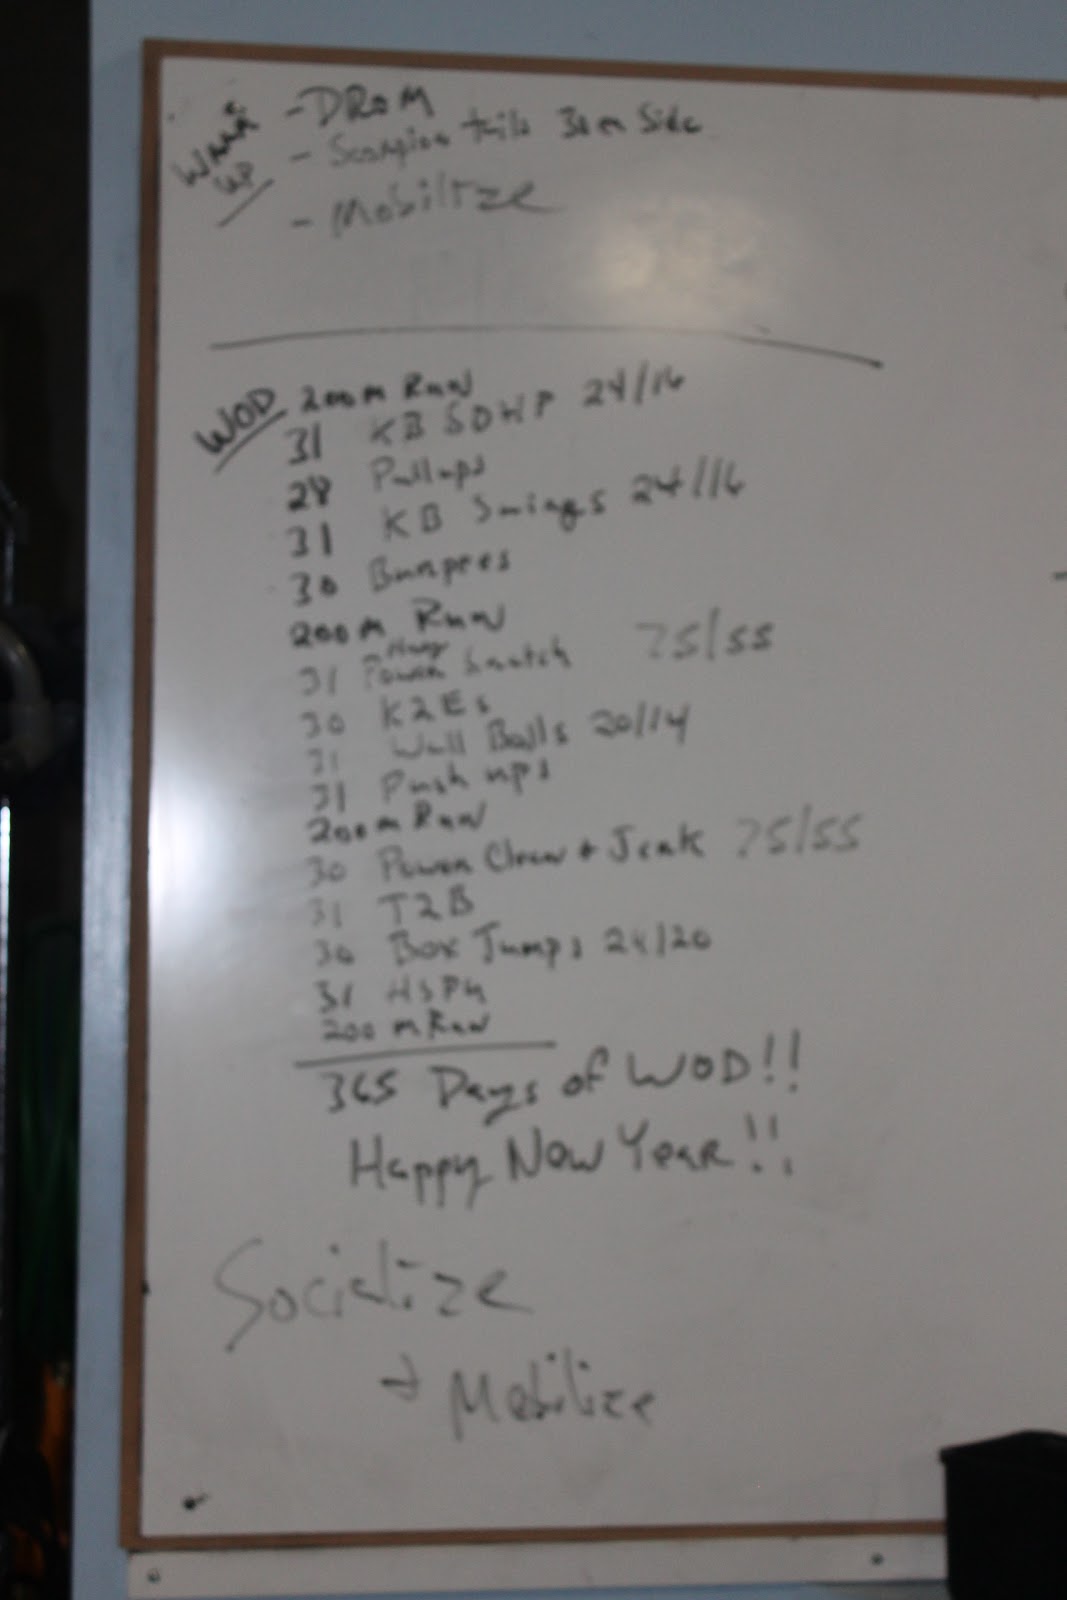 WARM UP
- DROM
- Scorpion tails 30 on Side
- Mobilize
WOD
200m Run
31 KB SDHP 24/16
28 Pullups
31 KB Swings 24/16
30 Burpees
200m Run
31 Hang Power Snatch 75/55
30 K2Es
31 Wall Balls 20/14
31 Push ups
200m Run
30 Power Clean + Jerk 75/55
31 T2B
30 Box Jumps 24/20
31 HSPU
200m Run
365 Days of WOD!!
Happy New Year!!
Socialize
+ Mobilize